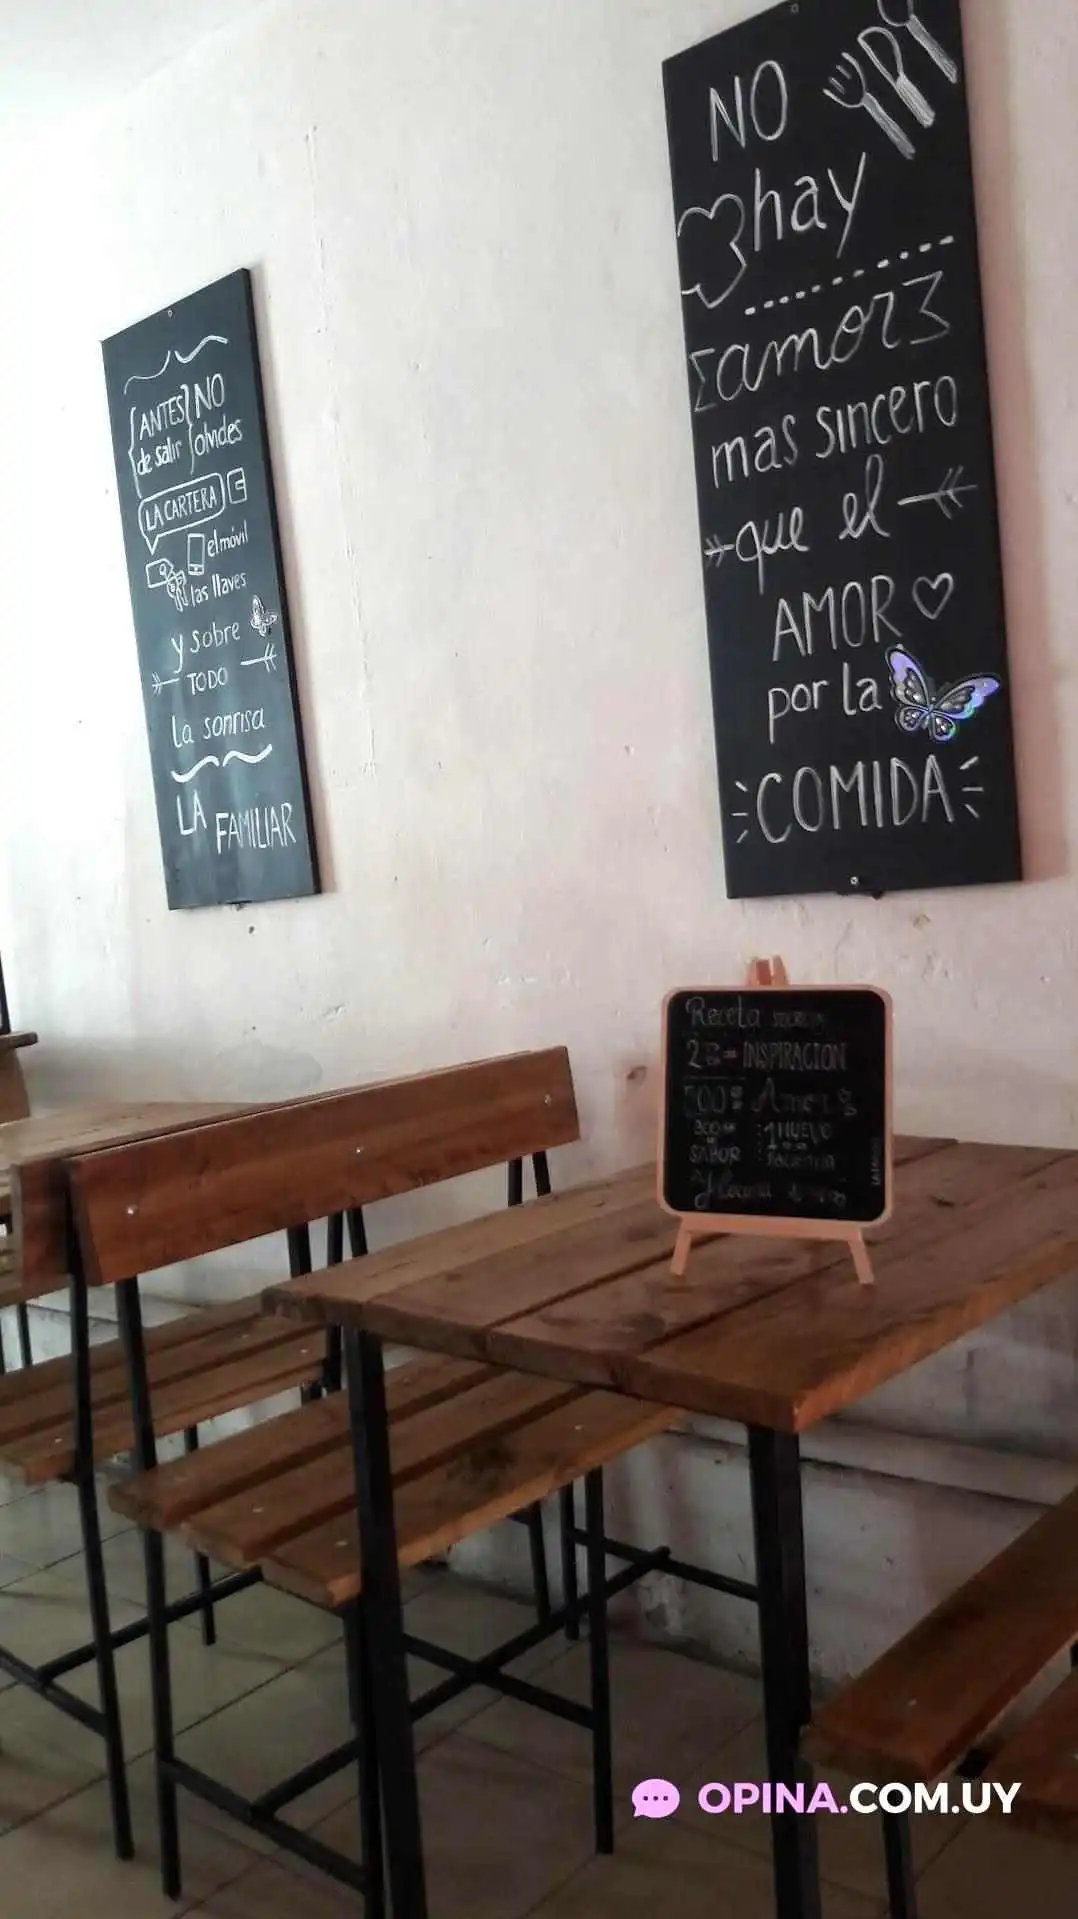 ANTES NO
de salir olvides
LA CARTERA
el móvil
las llaves
y sobre
TODO
la sonrisa
LA FAMILIAR
NO
hay
amor
mas sincero
que el
AMOR
por la
COMIDA
Receta
INSPIRACION
Amor
1 HUEVO
SABOR
OPINA.COM.UY